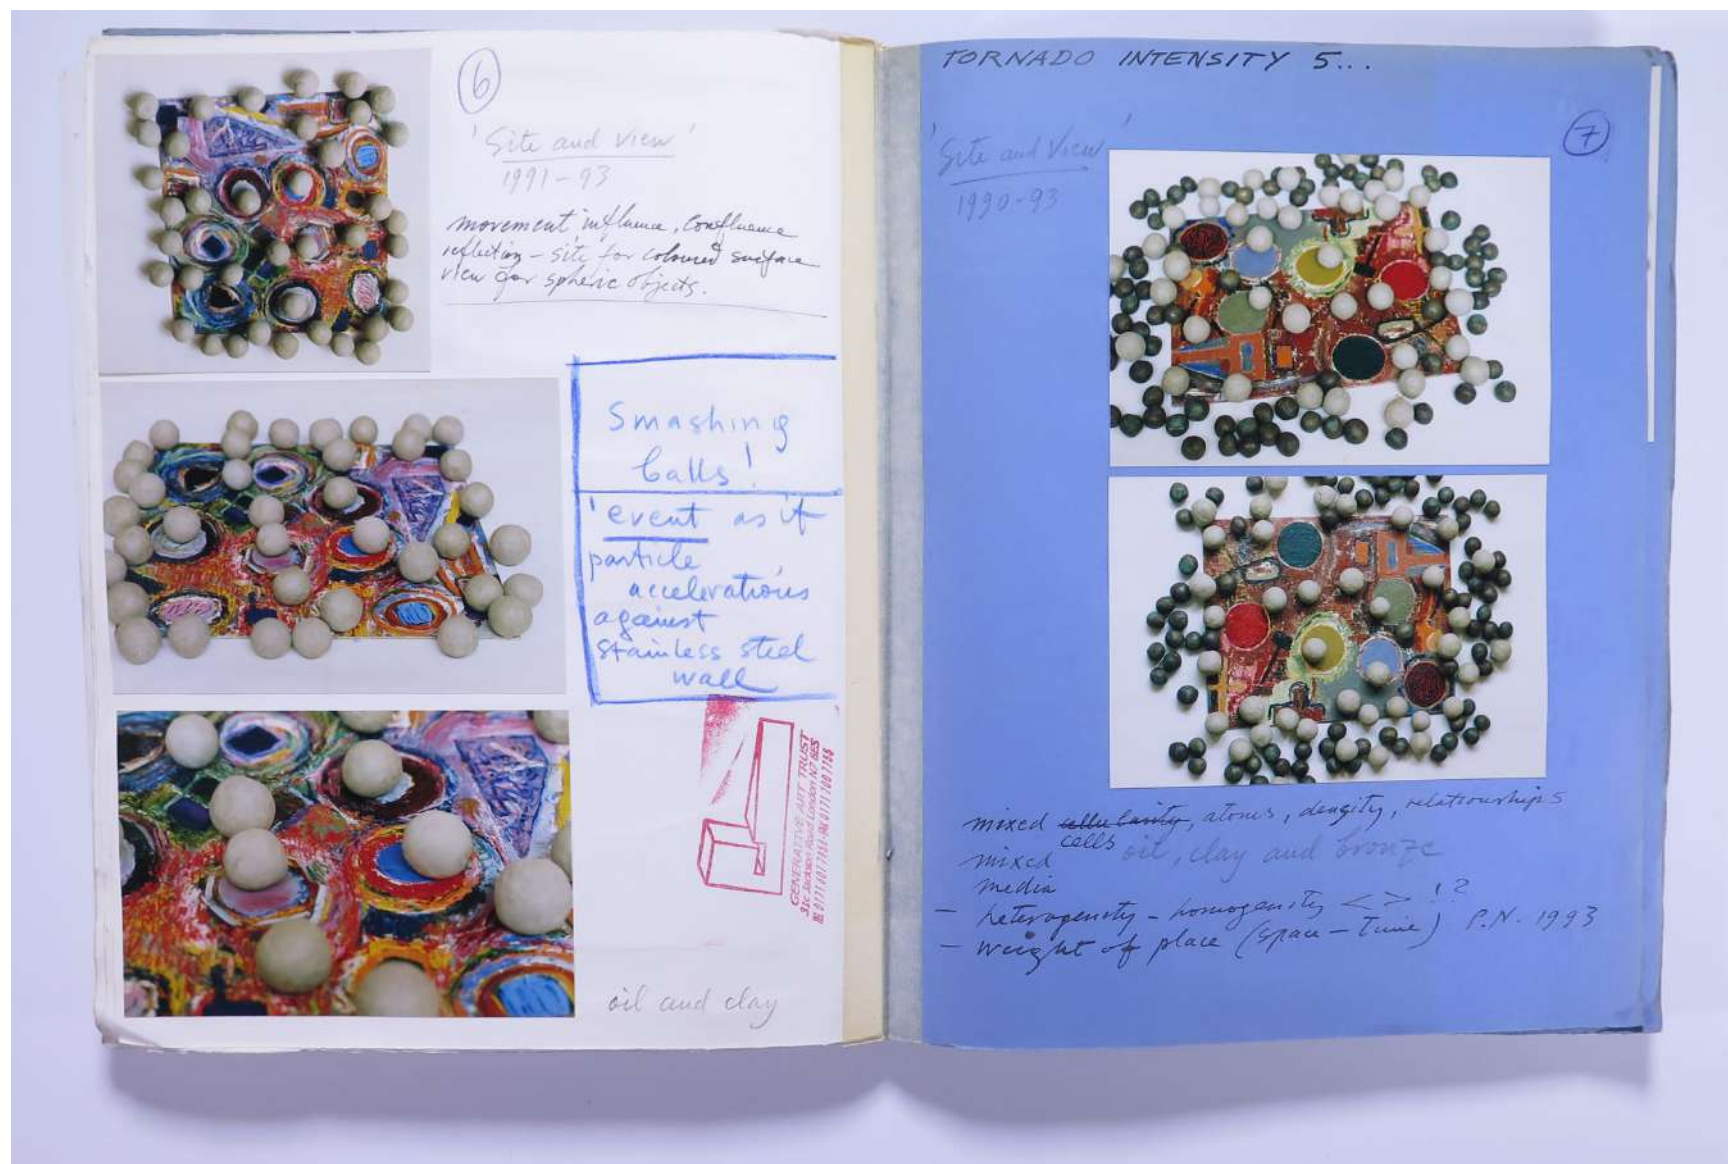 6
'Site and View'
1991-93
movement influence, confluence
reflecting - 'site' for coloured surface
view for spheric objects.
Smashing
balls!
'event as if
particle
accelerations
against
stainless steel
wall
GENERATIVE ART TRUST
31c Jackson Road London N7 6ES
oil and clay
TORNADO INTENSITY 5...
7
'Site and View'
1990-93
mixed cellularity, atoms, density, relationships
cells
mixed
media
oil, clay and bronze
- heterogenity - homogenity < > !?
- weight of place (space-Time) P.N. 1993